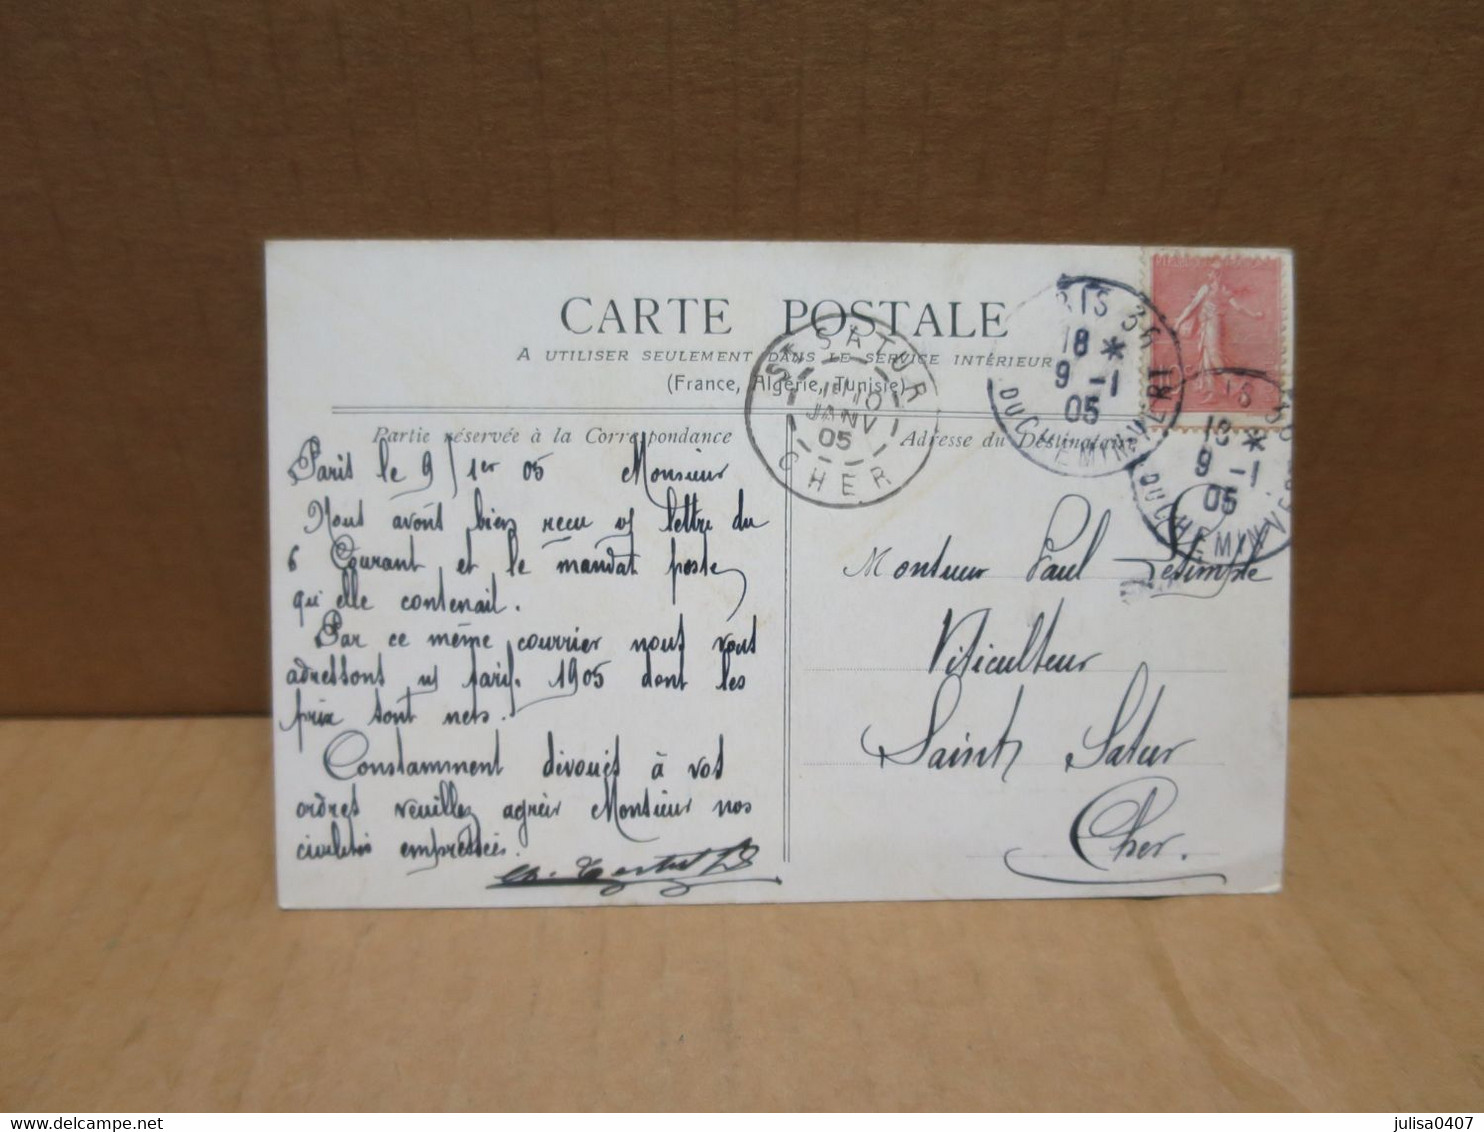 CARTE POSTALE
A UTILISER SEULEMENT DANS LE SERVICE INTÉRIEUR
(France, Algérie, Tunisie)
Partie réservée à la Correspondance
Paris le 9/1er 05 Monsieur
Nous avons bien reçu v/ lettre du
6 Courant et le mandat poste
qu'elle contenait.
Par ce même courrier nous vous
adressons n/ tarif. 1905 dont les
prix sont nets.
Constamment dévoués à vos
ordres veuillez agréer Monsieur nos
civilités empressées.
Adresse du Destinataire
Monsieur Paul
Viticulteur
Saint Satur
Cher.
ST SATUR
10
JANV
05
CHER
RIS 36
18 *
9 -1
05
R. DU CHEMIN VERT
IS 36
18 *
9 -1
05
DU CHEMIN VE
julisa0407